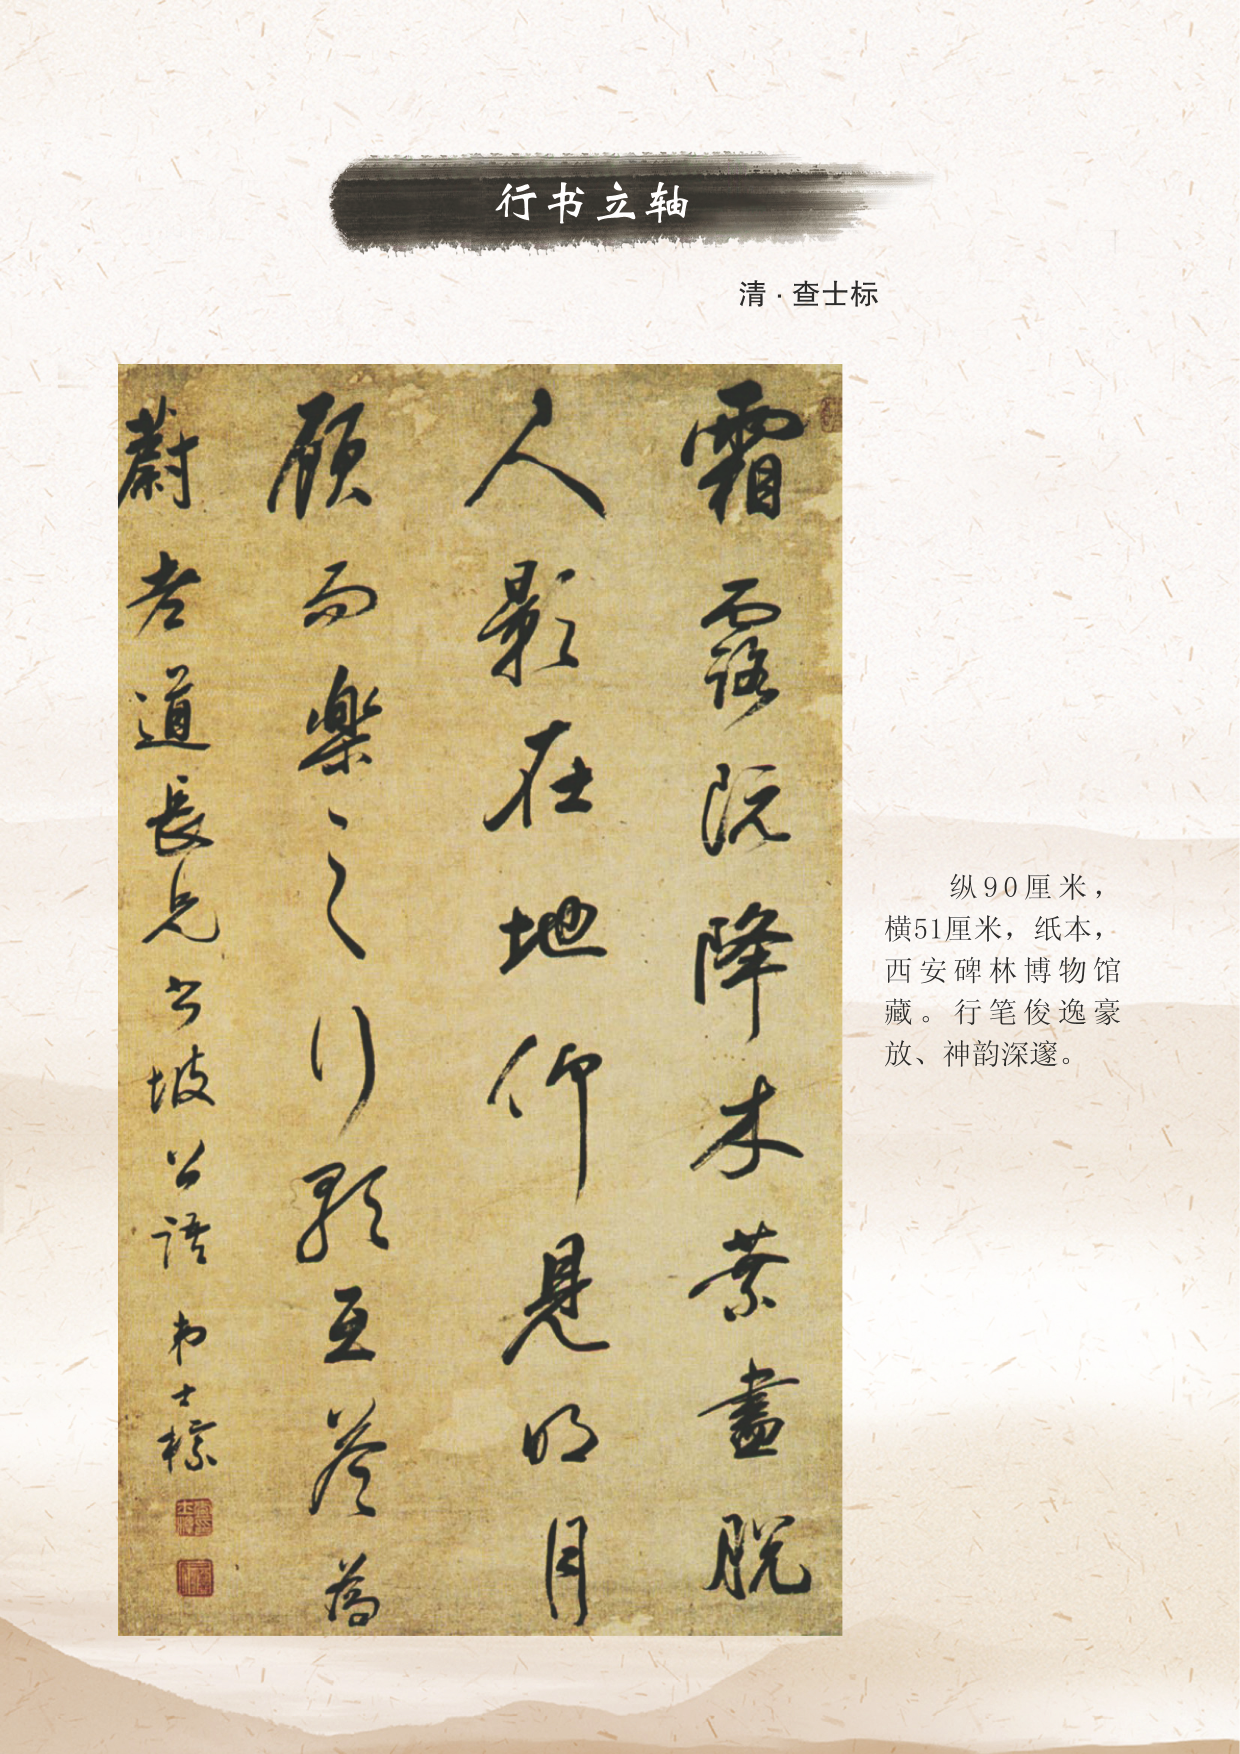 行书立轴
清·查士标
霜露既降木葉盡脱
人影在地仰見明月
顧而樂之行歌互答為
蔚老道長兄書坡公語
弟士標
纵90厘米，
横51厘米，纸本，
西安碑林博物馆
藏。行笔俊逸豪
放、神韵深邃。